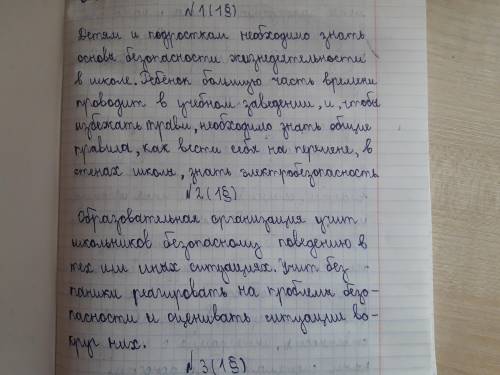 №1(1§)
Детям и подросткам необходимо знать
основы безопасности жизнедетельности
в школе. Ребёнок большую часть времени
проводит в учебном заведении, и, чтобы
избежать травм, необходимо знать общие
правила, как вести себя на перемене, в
стенах школы, знать электробезопасность
№2(1§)
Образовательная организация учит
школьников безопасному поведению в
тех или иных ситуациях. Учит без
паники реагировать на проблемы безо-
пасности и оценивать ситуации во-
круг них.
№3(1§)